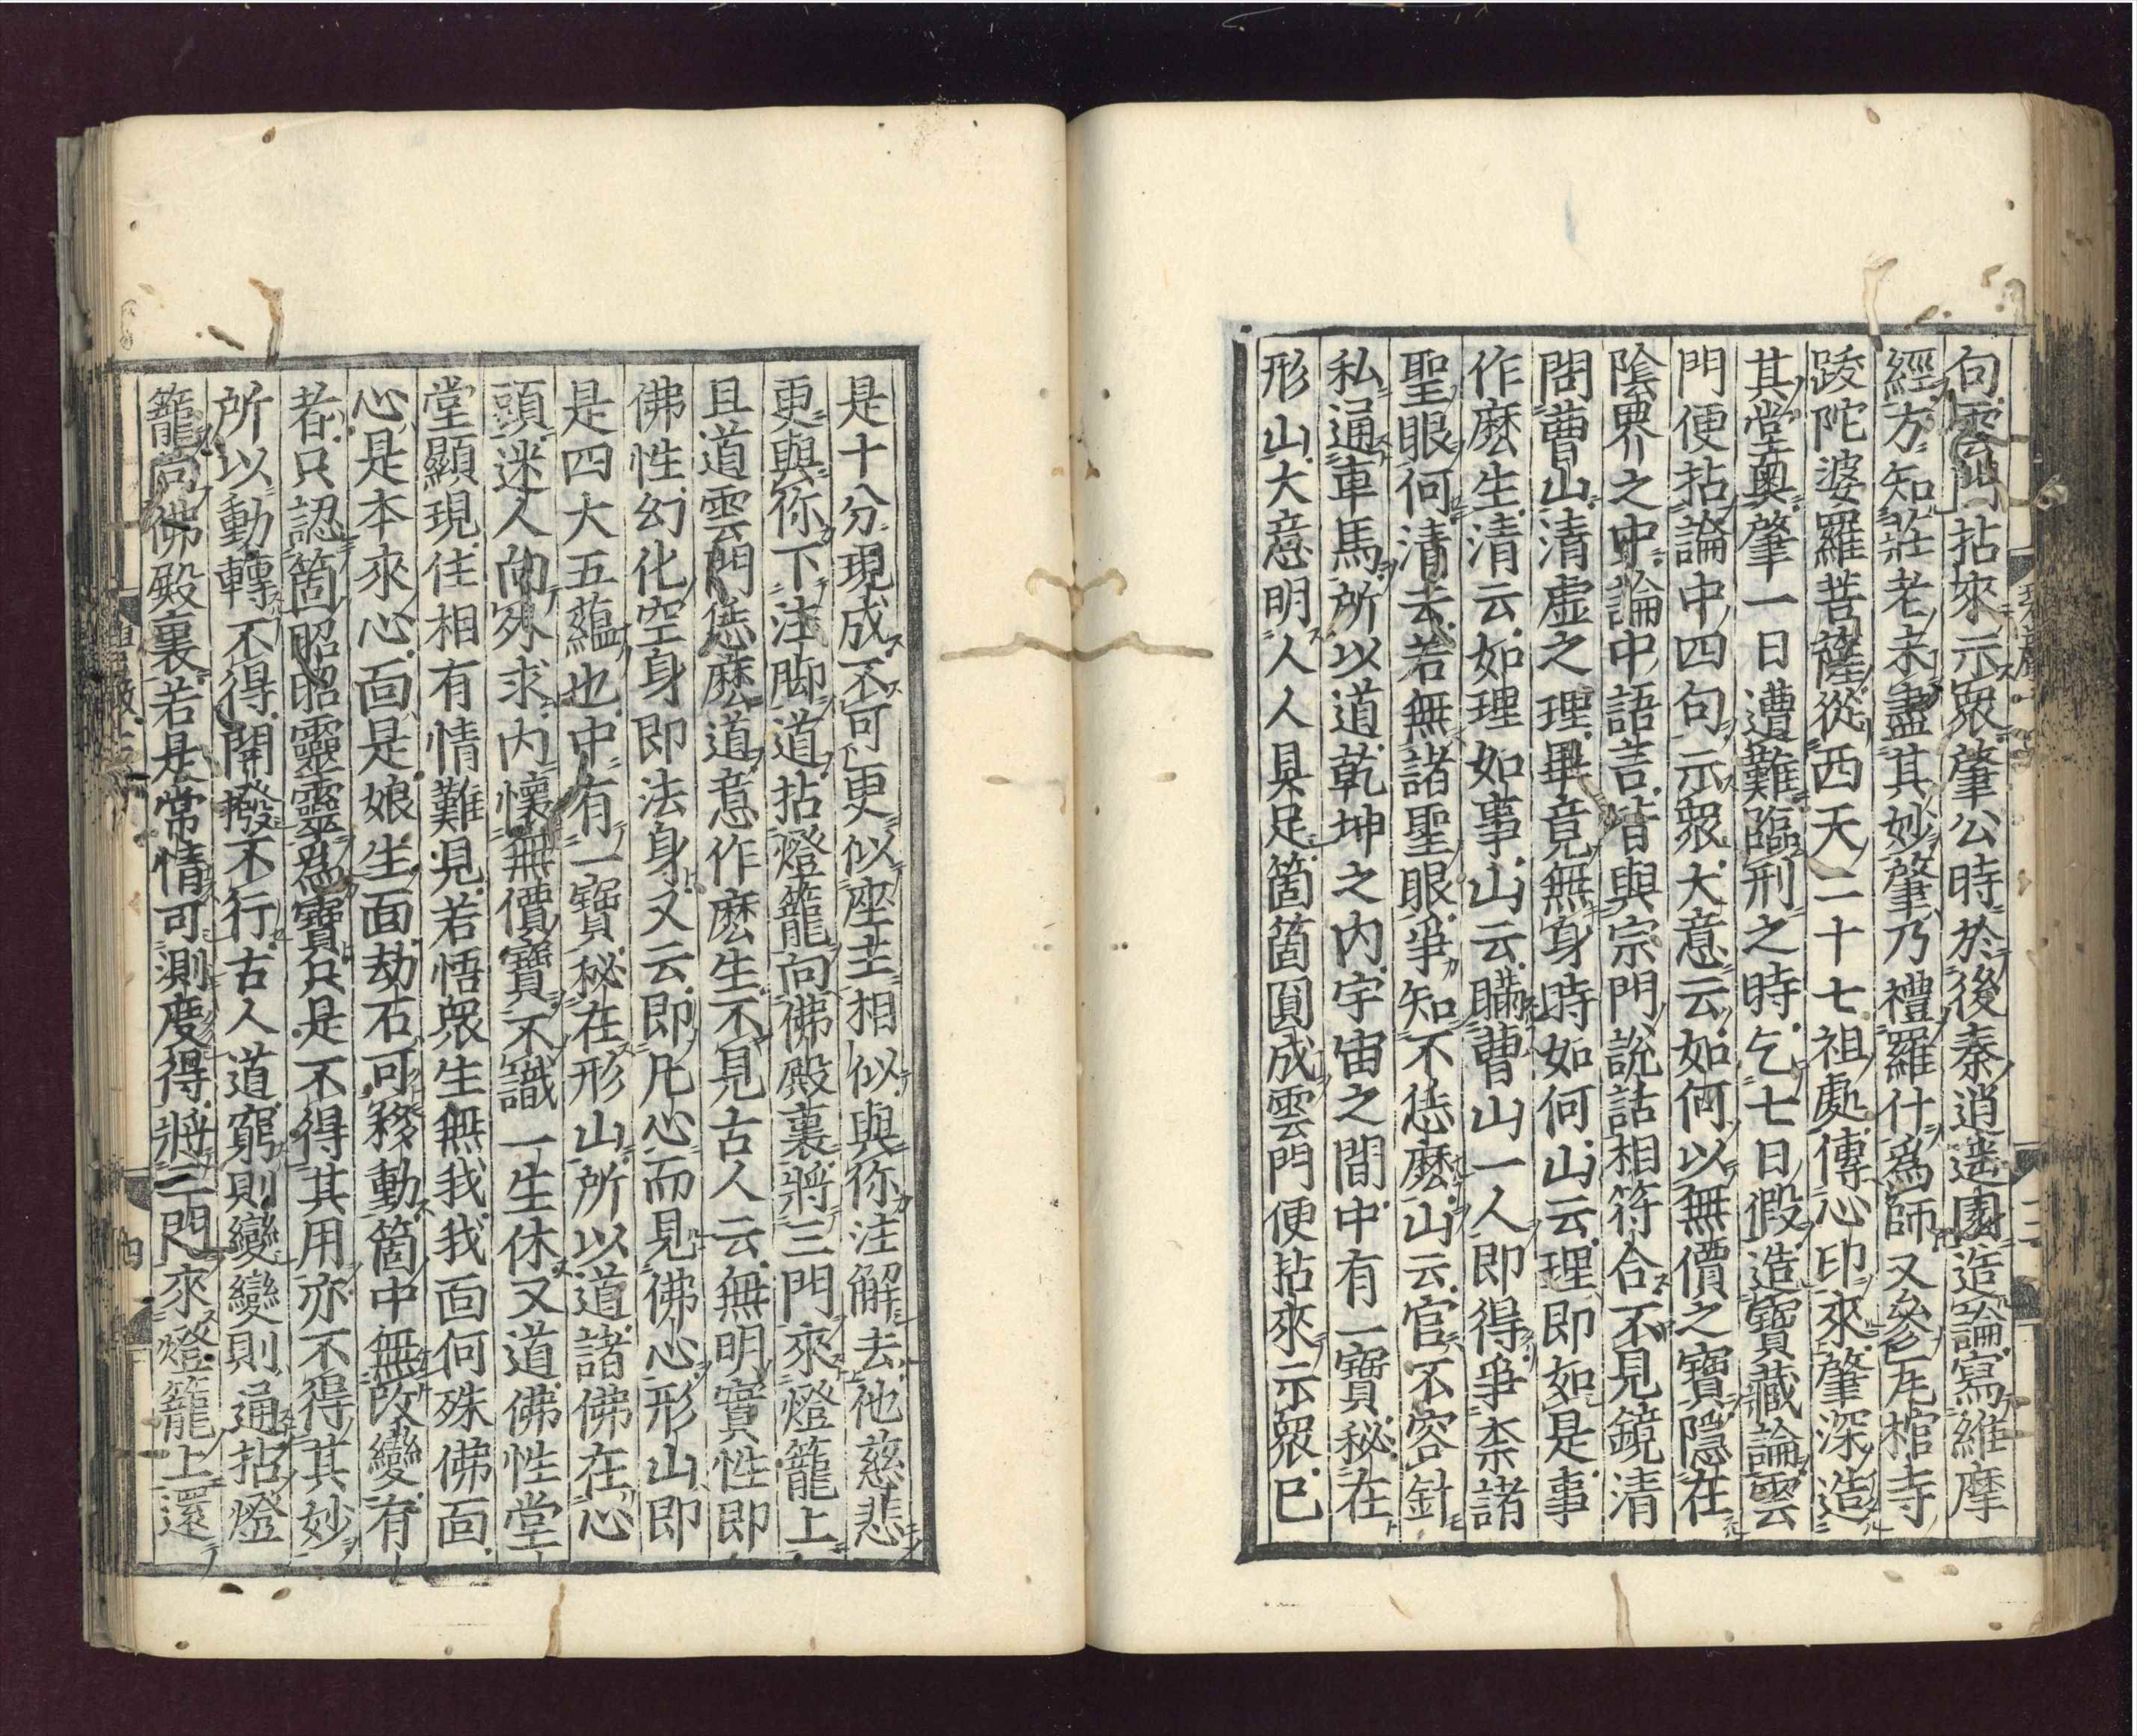 句雲門拈來示衆肇公時於後秦逍遙園造論寫維摩
經方知莊老未盡其妙肇乃禮羅什爲師又參瓦棺寺
跋陀婆羅菩薩從西天二十七祖處傳心印來肇深造
其堂奧肇一日遭難臨刑之時乞七日假造寶藏論雲
門便拈論中四句示衆大意云如何以無價之寶隱在
陰界之中論中語言皆與宗門說話相符合不見鏡清
問曹山清虛之理畢竟無身時如何山云理即如是事
作麽生清云如理如事山云瞞曹山一人即得爭柰諸
聖眼何清云若無諸聖眼爭知不恁麽山云官不容針
私通車馬所以道乾坤之內宇宙之間中有一寶秘在
形山大意明人人具足箇箇圓成雲門便拈來示衆已
是十分現成不可更似座主相似與你注解去他慈悲
更與你下注脚道拈燈籠向佛殿裏將三門來燈籠上
且道雲門恁麽道意作麽生不見古人云無明實性即
佛性幻化空身即法身又云即凡心而見佛心形山即
是四大五蘊也中有一寶秘在形山所以道諸佛在心
頭迷人向外求內懷無價寶不識一生休又道佛性堂
堂顯現住相有情難見若悟衆生無我我面何殊佛面
心是本來心面是娘生面劫石可移動箇中無改變有
者只認箇昭昭靈靈爲寶只是不得其用亦不得其妙
所以動轉不得開撥不行古人道窮則變變則通拈燈
籠向佛殿裏若是常情可測度得將三門來燈籠上還
四